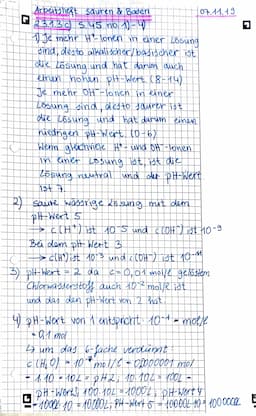 Arbeitsheft Säuren & Basen 07.11.19
2.3.1.3 c) S.45 no 1)-4)
1) Je mehr H⁺-Ionen in einer Lösung
sind, desto alkalischer/basischer ist
die Lösung und hat darum auch
einen hohen pH-Wert (8-14)
Je mehr OH⁻-Ionen in einer
Lösung sind, desto saurer ist
die Lösung und hat darum einen
niedrigen pH-Wert (0-6)
Wenn gleichviele H⁺- und OH⁻-Ionen
in einer Lösung ist, ist die
Lösung neutral und der pH-Wert
ist 7.
2) saure wässrige Lösung mit dem
pH-Wert 5
→ c(H⁺) ist 10⁻⁵ und c(OH⁻) ist 10⁻⁹
Bei dem pH-Wert 3
→ c(H⁺) ist 10⁻³ und c(OH⁻) ist 10⁻¹¹
3) pH-Wert = 2 da c = 0,01 mol/l gelösten
Chlorwasserstoff auch 10⁻² mol/l ist
und das den pH-Wert von 2 hat.
4) pH-Wert von 1 entspricht 10⁻¹ mol/l
= 0,1 mol
↳ um das 6-fache verdünnt
= 1·10 = 10L = pH 2; 10·10L = 100L =